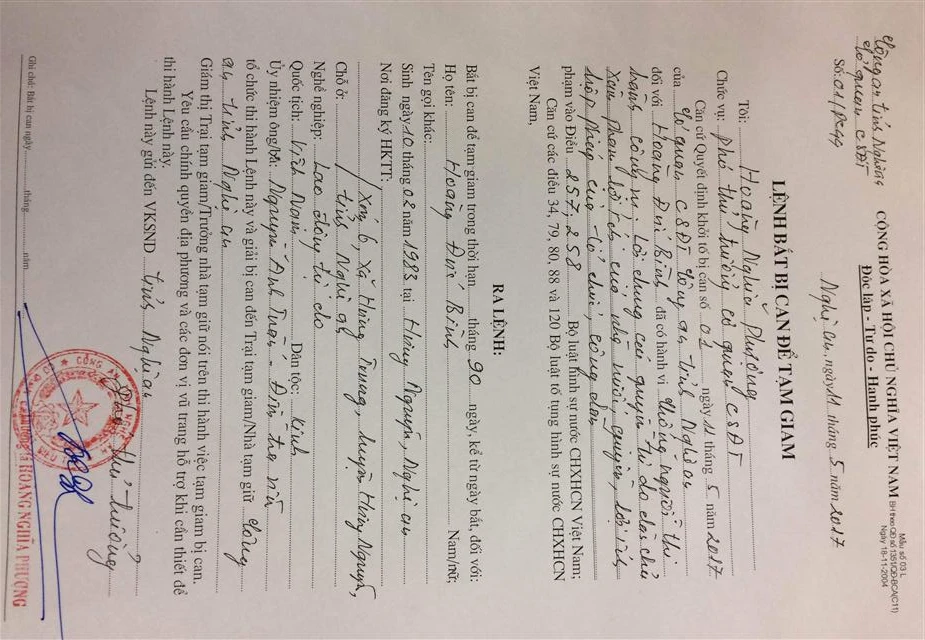 Mẫu số 03 L
BH theo QĐ số 1351/QĐ-BCA(C11)
Ngày 18-11-2004
Công an tỉnh Nghệ an
Cơ quan CSĐT
Số: 04/PC44
CỘNG HÒA XÃ HỘI CHỦ NGHĨA VIỆT NAM
Độc lập - Tự do - Hạnh phúc
Nghệ an, ngày 11 tháng 5 năm 2017
LỆNH BẮT BỊ CAN ĐỂ TẠM GIAM
Tôi: Hoàng Nghĩa Phương
Chức vụ: Phó thủ trưởng cơ quan CSĐT
Căn cứ Quyết định khởi tố bị can số 01 ngày 11 tháng 5 năm 2017
của Cơ quan CSĐT Công an tỉnh Nghệ an
đối với Hoàng Đức Bình đã có hành vi Chống người thi
hành công vụ; Lợi dụng các quyền tự do dân chủ
xâm phạm lợi ích của nhà nước, quyền, lợi ích
hợp pháp của tổ chức, công dân
phạm vào Điều 257, 258 Bộ luật hình sự nước CHXHCN Việt Nam;
Căn cứ các điều 34, 79, 80, 88 và 120 Bộ luật tố tụng hình sự nước CHXHCN
Việt Nam,
RA LỆNH:
Bắt bị can để tạm giam trong thời hạn tháng 90 ngày, kể từ ngày bắt, đối với:
Họ tên: Hoàng Đức Bình Nam/nữ;
Tên gọi khác:
Sinh ngày 10 tháng 02 năm 1983 tại Hưng Nguyên, Nghệ an
Nơi đăng ký HKTT:
Chỗ ở: Xóm 6, xã Hưng Trung, huyện Hưng Nguyên,
tỉnh Nghệ an
Nghề nghiệp: Lao động tự do
Quốc tịch: Việt Nam Dân tộc: Kinh
Ủy nhiệm ông/bà: Nguyễn Anh Tuấn - Điều tra viên
tổ chức thi hành Lệnh này và giải bị can đến Trại tạm giam/Nhà tạm giữ Công
an tỉnh Nghệ an
Giám thị Trại tạm giam/Trưởng nhà tạm giữ nói trên thi hành việc tạm giam bị can.
Yêu cầu chính quyền địa phương và các đơn vị vũ trang hỗ trợ khi cần thiết để
thi hành Lệnh này.
Lệnh này gửi đến VKSND tỉnh Nghệ an
Phó thủ trưởng
HOÀNG NGHĨA PHƯƠNG
Ghi chú: Bắt bị can ngày tháng năm